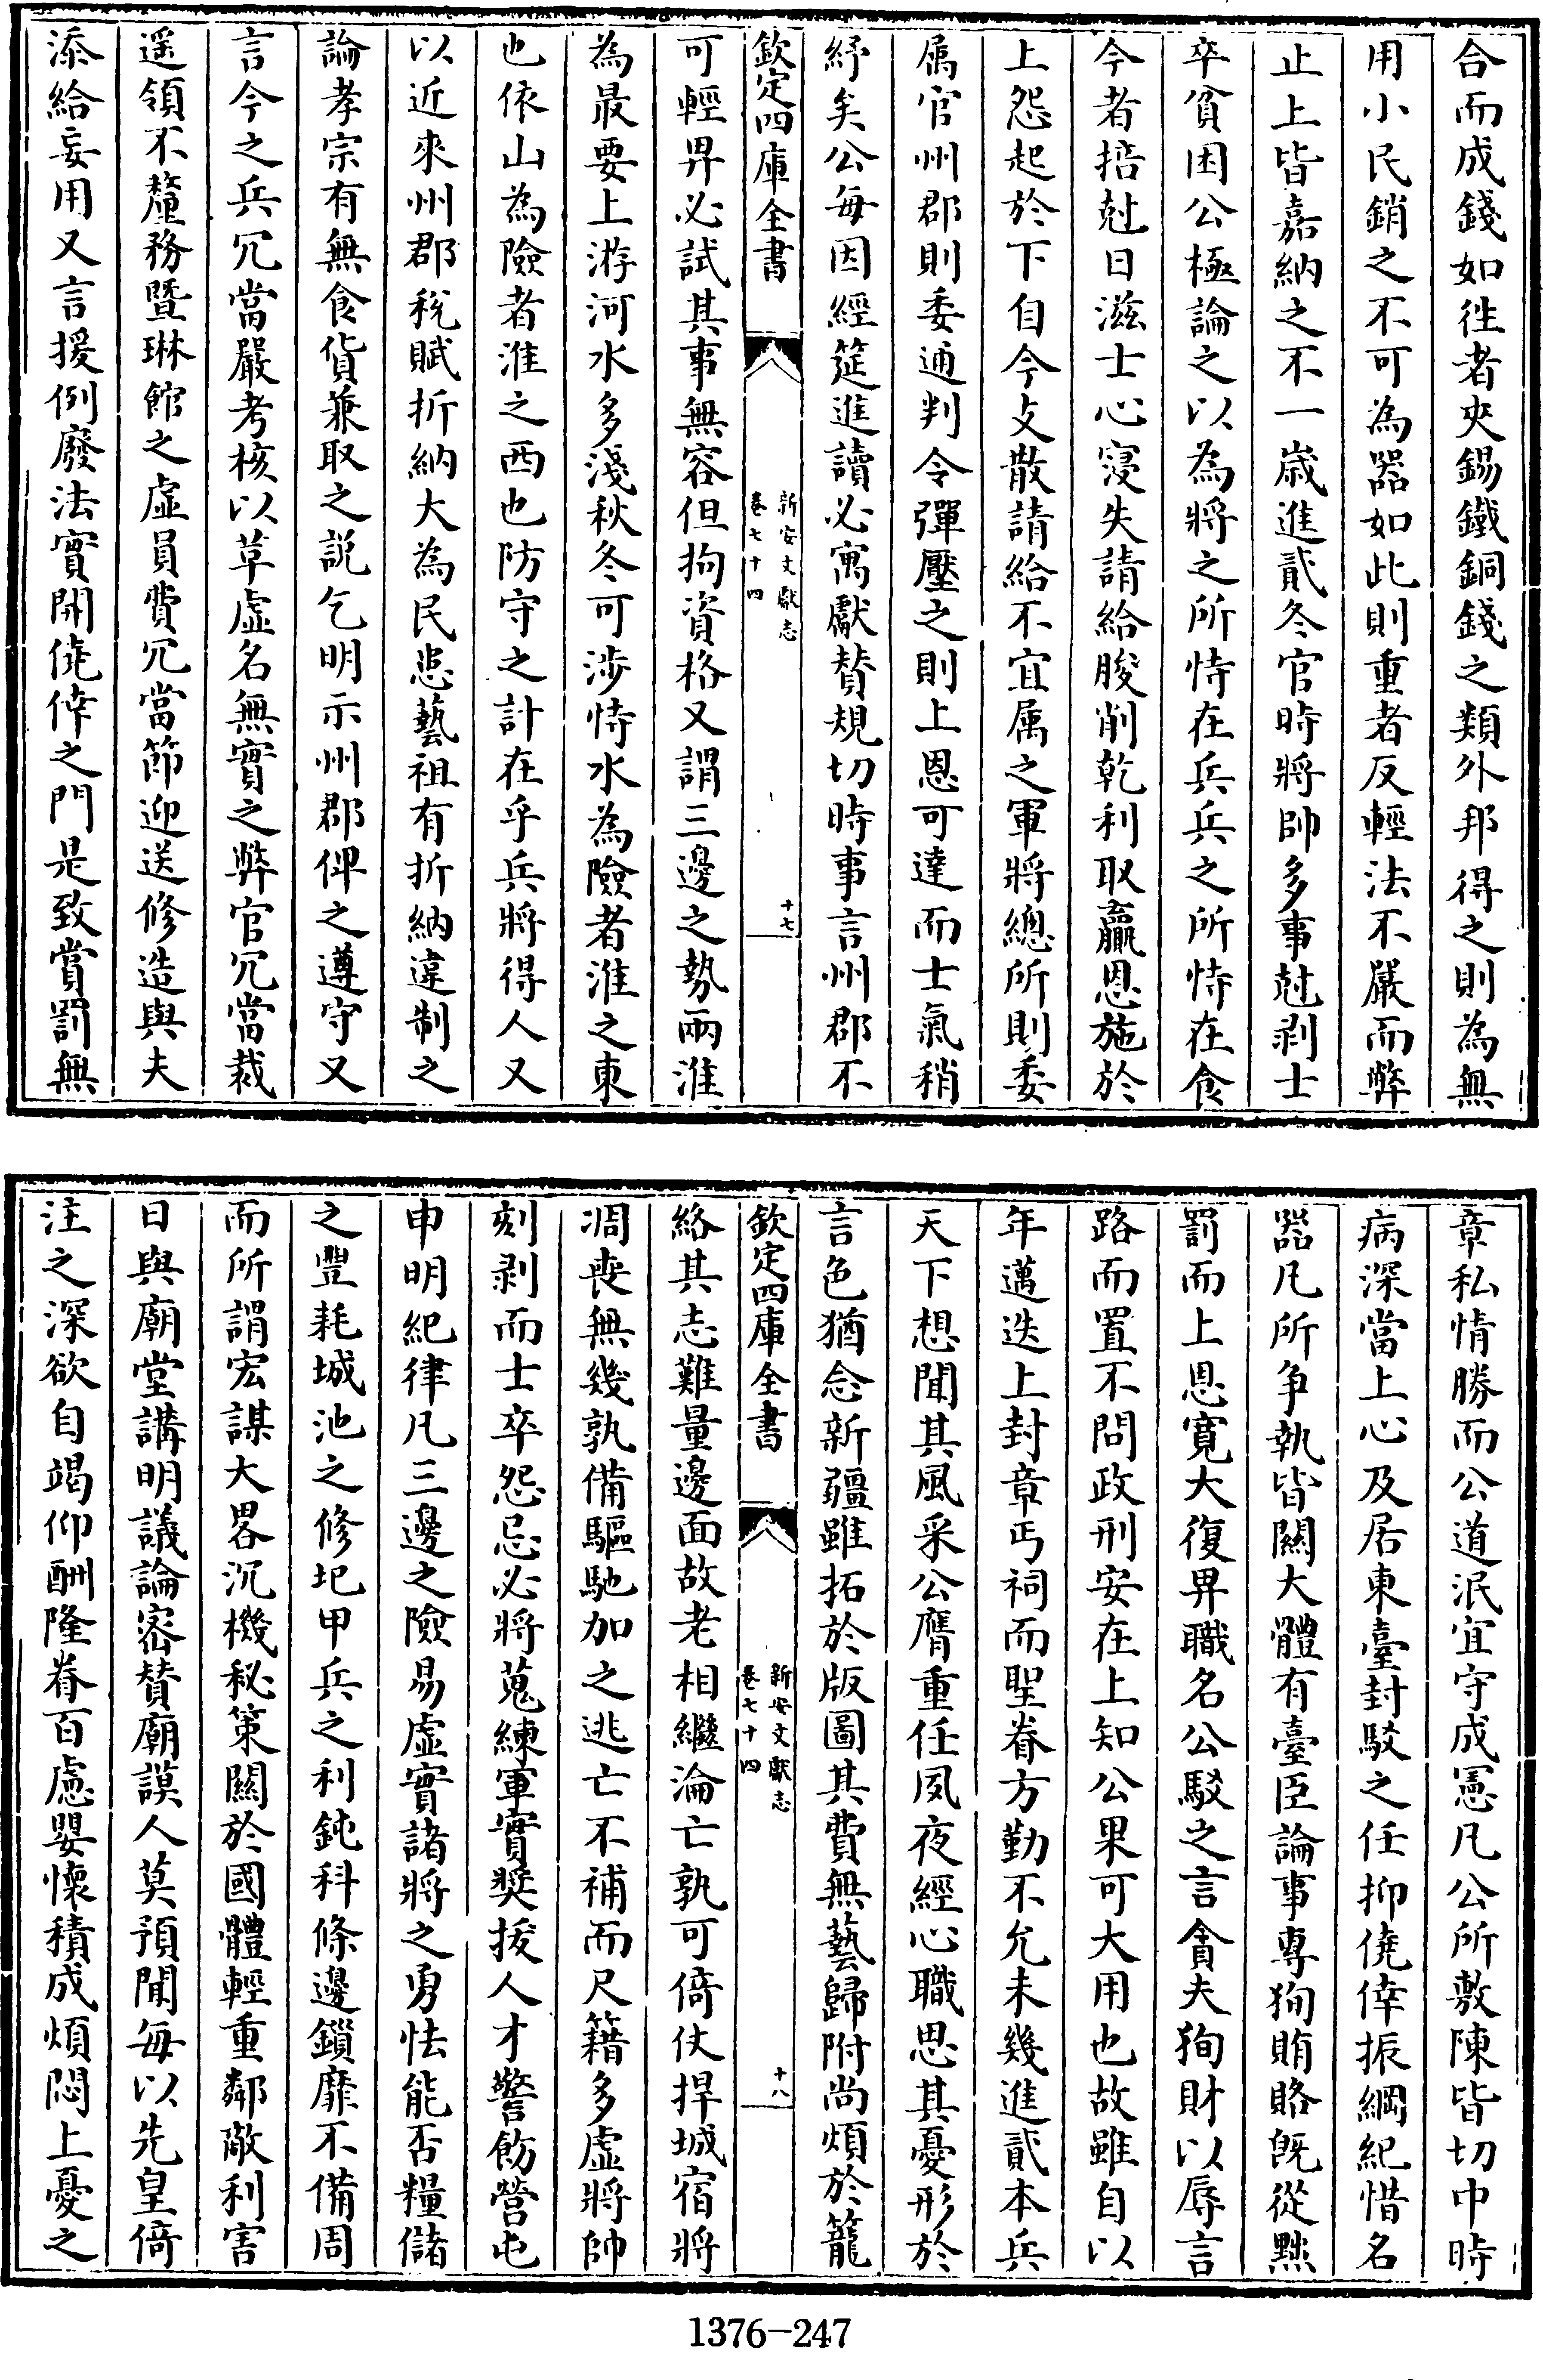 合而成錢如徃者夾錫鐵銅錢之類外邦得之則為無
用小民銷之不可為器如此則重者反輕法不嚴而弊
止上皆嘉納之不一嵗進貳冬官時將帥多事尅剥士
卒貧困公極論之以為將之所恃在兵兵之所恃在食
今者掊尅日滋士心寖失請給朘削乾利取贏恩施於
上怨起於下自今攴散請給不宜属之軍將總所則委
属官州郡則委通判令彈壓之則上恩可達而士氣稍
紓矣公每因經筵進讀必寓獻替規切時事言州郡不
欽定四庫全書
新安文獻志
卷七十四
十七
可輕畀必試其事無容但拘資格又謂三邊之勢兩淮
為最要上游河水多淺秋冬可涉恃水為險者淮之東
也依山為險者淮之西也防守之計在乎兵將得人又
以近來州郡稅賦折納大為民患藝祖有折納違制之
論孝宗有無食貨兼取之説乞明示州郡俾之遵守又
言今之兵冗當嚴考核以革虛名無實之弊官冗當裁
遥領不釐務暨琳館之虛員費冗當節迎送修造與夫
添給妄用又言援例廢法實開僥倖之門是致賞罰無
章私情勝而公道泯宜守成憲凡公所敷陳皆切中時
病深當上心及居東臺封駁之任抑僥倖振綱紀惜名
器凡所争執皆關大體有臺臣論事專狥賄賂既從黜
罰而上恩寛大復畀職名公駁之言貪夫狥財以辱言
路而置不問政刑安在上知公果可大用也故雖自以
年邁迭上封章丐祠而聖眷方勤不允未幾進貳本兵
天下想聞其風采公膺重任夙夜經心職思其憂形於
言色猶念新疆雖拓於版圖其費無藝歸附尚煩於籠
欽定四庫全書
新安文獻志
卷七十四
十八
絡其志難量邊面故老相繼淪亡孰可倚仗捍城宿將
凋喪無幾孰備驅馳加之逃亡不補而尺籍多虛將帥
刻剥而士卒怨忌必將蒐練軍實奬拔人才警飭營屯
申明紀律凡三邊之險易虛實諸將之勇怯能否糧儲
之豐耗城池之修圮甲兵之利鈍科條邊鎖靡不備周
而所謂宏謀大畧沉機秘策關於國體輕重鄰敵利害
日與廟堂講明議論密賛廟謨人莫預聞每以先皇倚
注之深欲自竭仰酬隆眷百慮嬰懷積成煩悶上憂之
1376-247